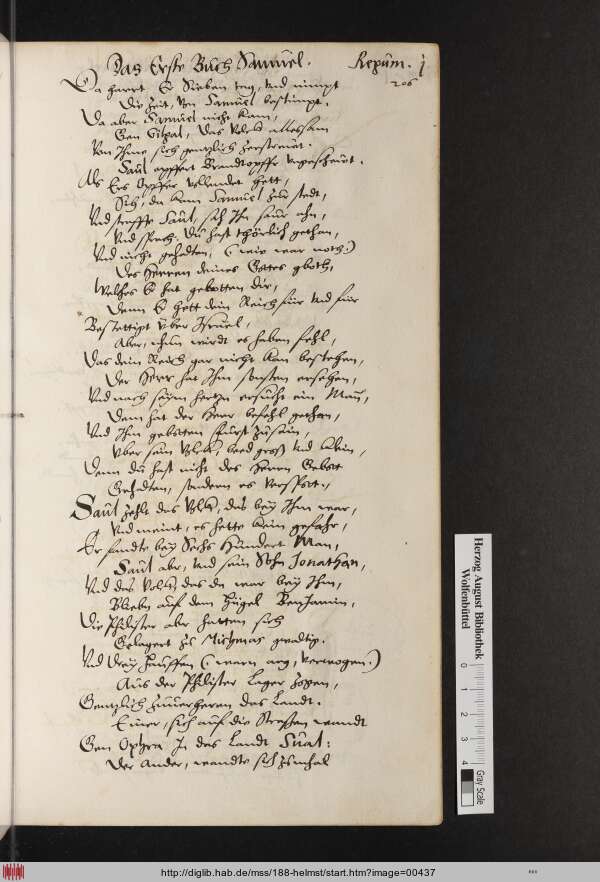 Das Erste Buch Samuel. Regum. j
206
Da harret Er Sieben tag, Vnd nimpt
Die Zeit, Von Samuel bestimpt.
Da aber Samuel nicht kam,
Gen Gilgal, das Volck allesam
Von Ihme sich gentzlich zerstrewt.
Saul opffert Brandtopffer vngeschewt.
Als Ers Opffer vollendet hett,
Sih, da kam Samuel zur stedt,
Vnd straffte Saul, sih Ihn saur ahn,
Vnd sprach, du hast thörlich gethan,
Vnd nicht gehalten, (wie war noth)
Des Herren deines Gottes gboth,
Welches Er hat gebotten dir,
Denn Er hett dein Reich für vnd für
Bestettigt vber Israel,
Aber, nhun wirdt es haben fehl,
Das dein Reich gar nicht kan bestehen,
Der Herr hat Ihm sonsten ersehen,
Vnd nach seim hertzn ersucht ein Man,
Dem hat der Herr befehl gethan,
Vnd Ihm gebotten Fürst zusein,
Vber sein Volck, beed groß vnd klein,
Denn du hast nicht des Herren Gebott
Gehalten, sondern es verspott.
Saul zehlt das Volck, das bey Ihm war,
Vnd meint, es hette kein gefahr,
Er fandte bey Sechs Hundert Man,
Saul aber, vnd sein Sohn Jonathan,
Vnd das Volck, das da war bey Ihm,
Blieben auf dem Hügel Benjamin,
Die Philister aber hatten sich
Gelagert zu Michmas
Vnd Drey Hauffen (warn arg, verwogen.)
Aus der Philister Lager zogen,
Gentzlich zuuerheren das Landt.
Einer, sich auf die Strassen wandt
Gen Ophra In das Landt Sual:
Der Ander, wandte sich zumhal
Herzog August Bibliothek
Wolfenbüttel
0 1 2 3 4
Gray Scale
http://diglib.hab.de/mss/188-helmst/start.htm?image=00437